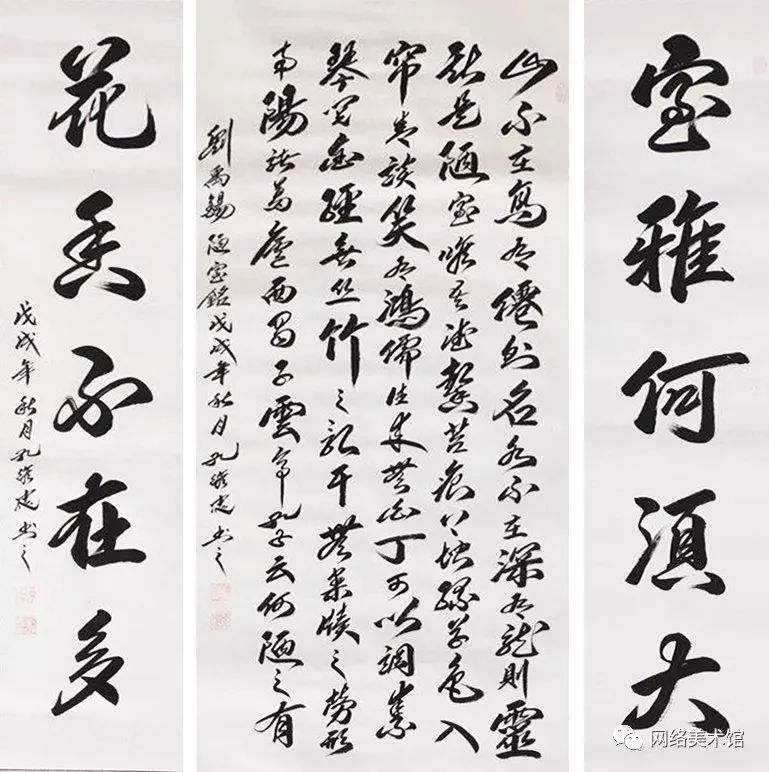 室雅何須大
山不在高有僊則名水不在深有龍則靈
斯是陋室唯吾德馨苔痕上堦綠草色入
帘青談笑有鴻儒往來無白丁可以調素
琴閱金經無丝竹之乱耳無案牘之勞形
南陽諸葛廬西蜀子雲亭孔子云何陋之有
劉禹錫陋室銘戊戌年秋月孔忠书之
花香不在多
戊戌年秋月孔忠书之
网络美术馆